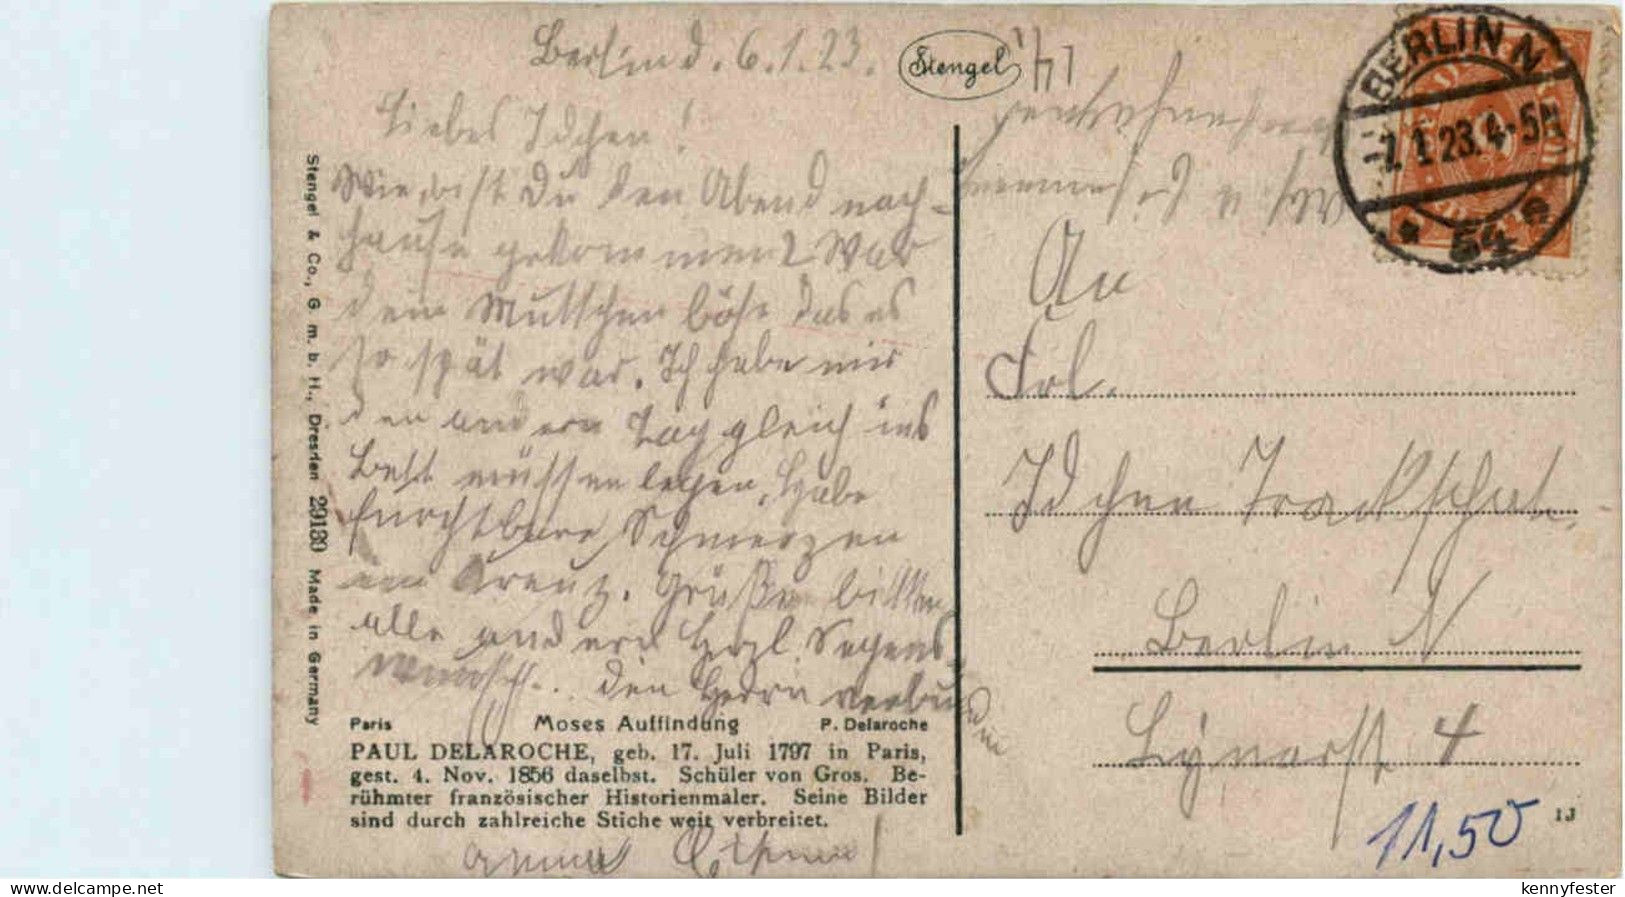 Berlin d. 6.1.23.
Stengel
Liebes Idchen!
Wie bist Du den Abend nach-
hause gekommen? War
dein Muttchen böse das es
so spät war. Ich habe mir
den andern Tag gleich ins
Bett müssen legen. Habe
furchtbare Schmerzen
im Kreuz. Grüße bitte
alle andern Herzl. Segens-
wunsch.. den Herrn verbunden
Paris Moses Auffindung P. Delaroche
PAUL DELAROCHE, geb. 17. Juli 1797 in Paris,
gest. 4. Nov. 1856 daselbst. Schüler von Gros. Be-
rühmter französischer Historienmaler. Seine Bilder
sind durch zahlreiche Stiche weit verbreitet.
Stengel & Co., G. m. b. H., Dresden 29180 Made in Germany
BERLIN N
7.1.23.4-5N
54
An
Frl.
Idchen
Berlin N
Lynarstr 4
11,50
IJ
kennyfester
www.delcampe.net